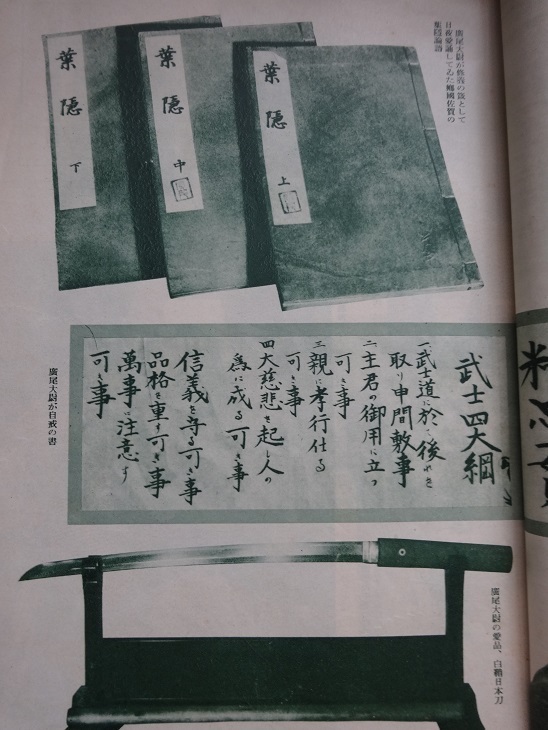 廣尾大尉が修養の として
日夜愛誦してゐた鄕國佐賀の
葉隱論語
葉隠 上
葉隠 中
葉隠 下
武士四大綱
一武士道に於て後れを
取り申間敷事
二主君の御用に立つ
可き事
三親に孝行仕る
可き事
四大慈悲を起し人の
為に成る可き事
信義を守る可き事
品格を重す可き事
萬事に注意す
可き事
廣尾大尉が自戒の書
廣尾大尉の愛品、白鞘日本刀